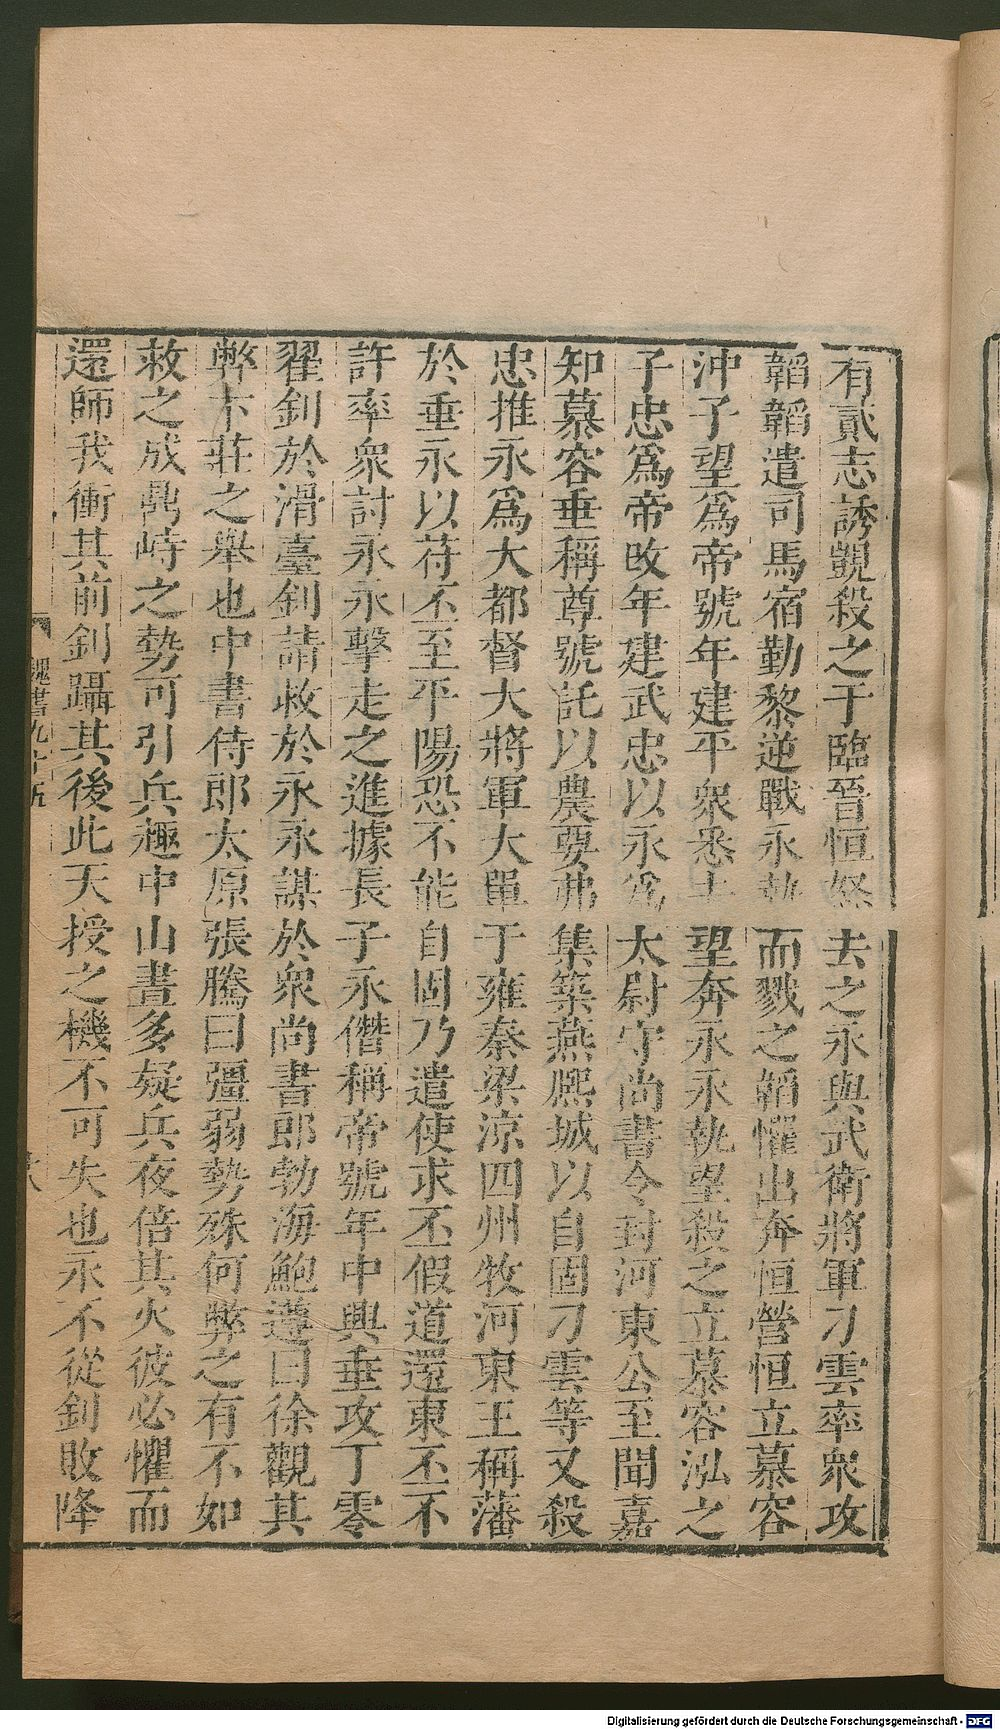 有貳志誘覬殺之于臨晉恒怒去之永與武衛將軍刁雲率衆攻
韜韜遣司馬宿勤黎逆戰永執而戮之韜懼出奔恒營恒立慕容
沖子望爲帝號年建平衆悉去望奔永永執望殺之立慕容泓之
子忠爲帝改年建武忠以永爲太尉守尚書令封河東公至聞嘉
知慕容垂稱尊號託以農要弗集築燕熙城以自固刁雲等又殺
忠推永爲大都督大將軍大單于雍秦梁涼四州牧河東王稱藩
於垂永以苻丕至平陽恐不能自固乃遣使求丕假道還東丕不
許率衆討永永擊走之進據長子永僭稱帝號年中興垂攻丁零
翟釗於滑臺釗請救於永永謀於衆尚書郎勃海鮑遵曰徐觀其
弊卞莊之舉也中書侍郎太原張騰曰彊弱勢殊何弊之有不如
救之成鼎峙之勢可引兵趣中山晝多疑兵夜倍其火彼必懼而
還師我衝其前釗躡其後此天授之機不可失也永不從釗敗降
魏書九十五
Digitalisierung gefördert durch die Deutsche Forschungsgemeinschaft - DFG